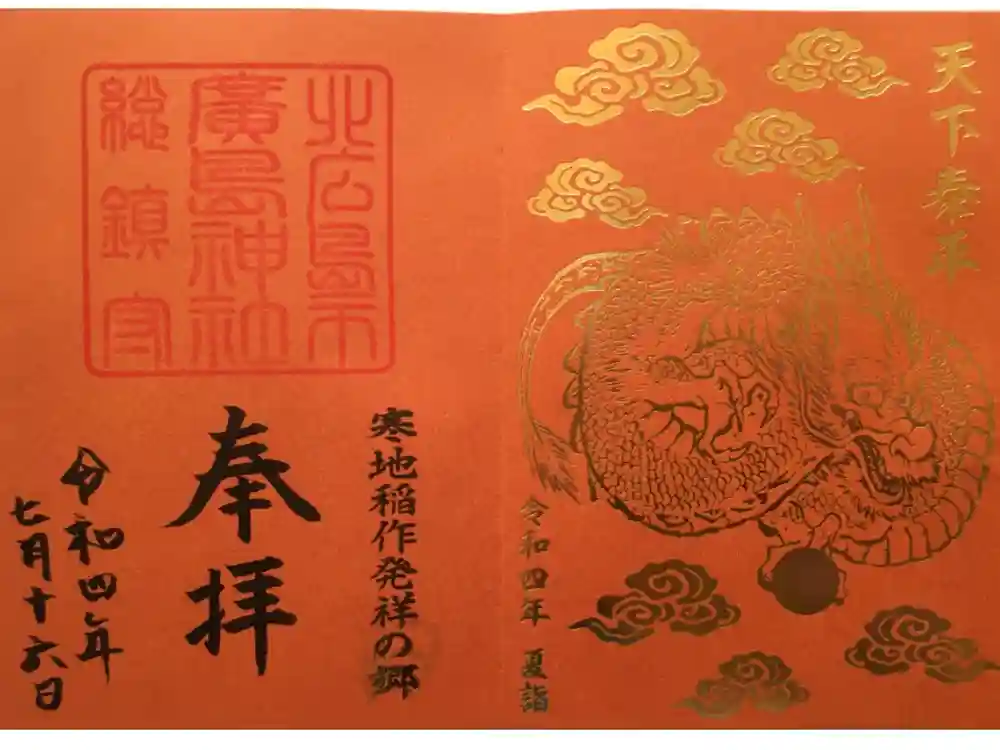 天下泰平
令和四年 夏詣
北広島市
廣島神社
総鎮守
寒地稲作発祥の郷
奉拝
令和四年
七月十六日